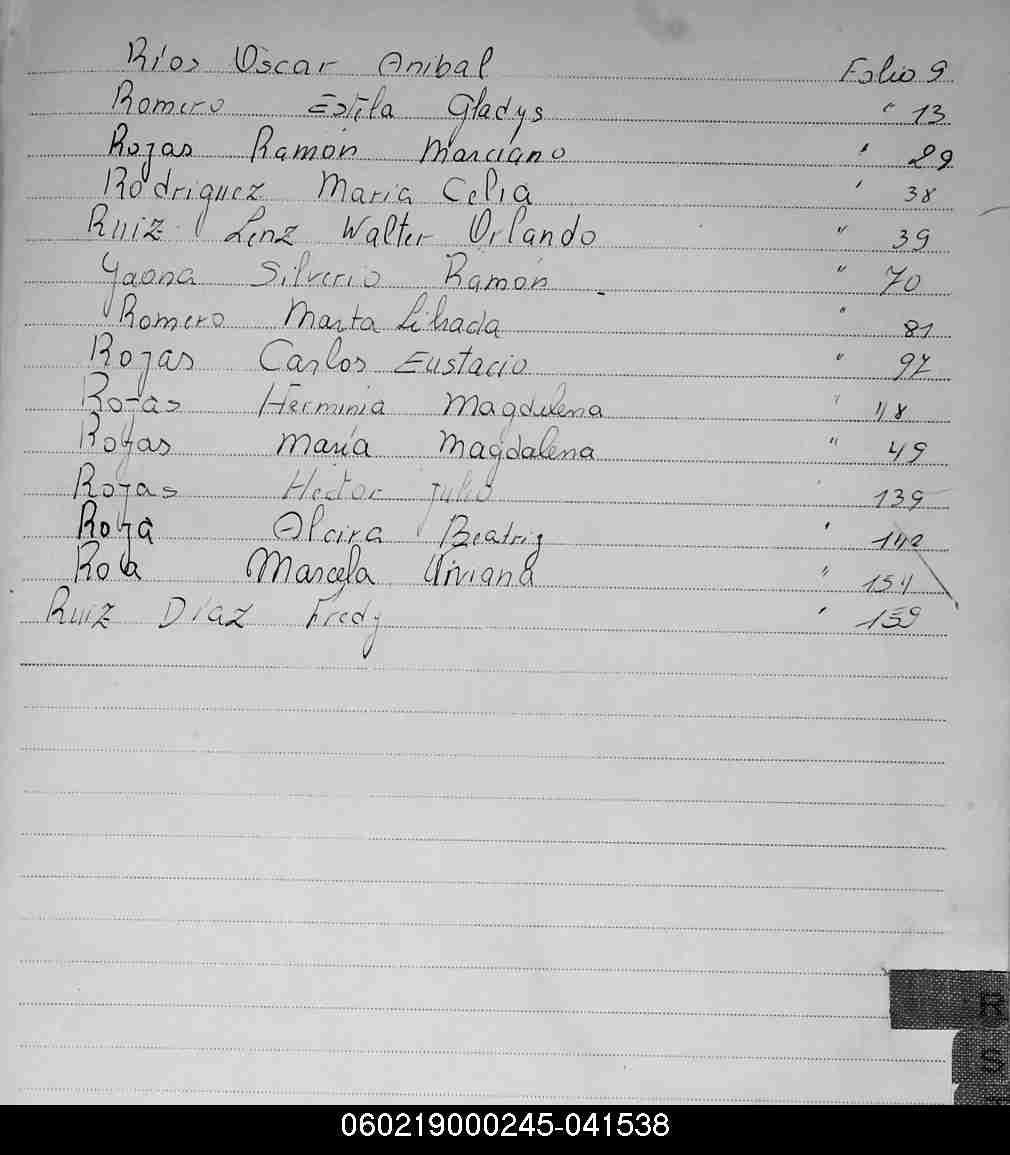 Ríos Oscar Anibal Folio 9
Romero Estila Gladys " 13
Rojas Ramón Marciano " 29
Rodriguez Maria Celia " 38
Ruiz Lenz Walter Orlando " 39
Gaona Silverio Ramón " 70
Romero Marta Librada " 81
Rojas Carlos Eustacio " 97
Rojas Herminia Magdalena " 118
Rojas María Magdalena " 49
Rojas Hector Julio 139
Roja Alcira Beatriz " 142
Rola Marcela Viviana " 154
Ruiz Díaz Fredy " 159
R
S
060219000245-041538